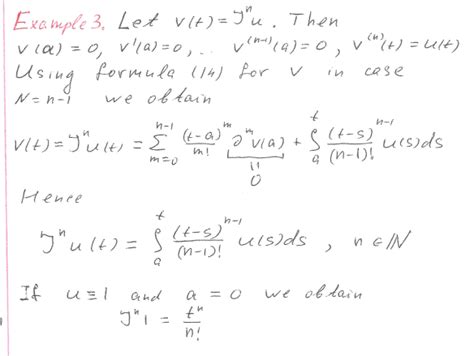 Example 3. Let v(t) = Jⁿu. Then
v(a) = 0, v'(a) = 0, .. v⁽ⁿ⁻¹⁾(a) = 0, v⁽ⁿ⁾(t) = u(t)
Using formula (14) for v in case
N = n-1 we obtain
v(t) = Jⁿu(t) = Σ_{m=0}^{n-1} (t-a)^m/m! ∂^m v(a) + ∫_a^t (t-s)^{n-1}/(n-1)! u(s)ds
||
0
Hence
Jⁿu(t) = ∫_a^t (t-s)^{n-1}/(n-1)! u(s)ds , n ∈ ℕ
If u ≡ 1 and a = 0 we obtain
Jⁿ1 = tⁿ/n!